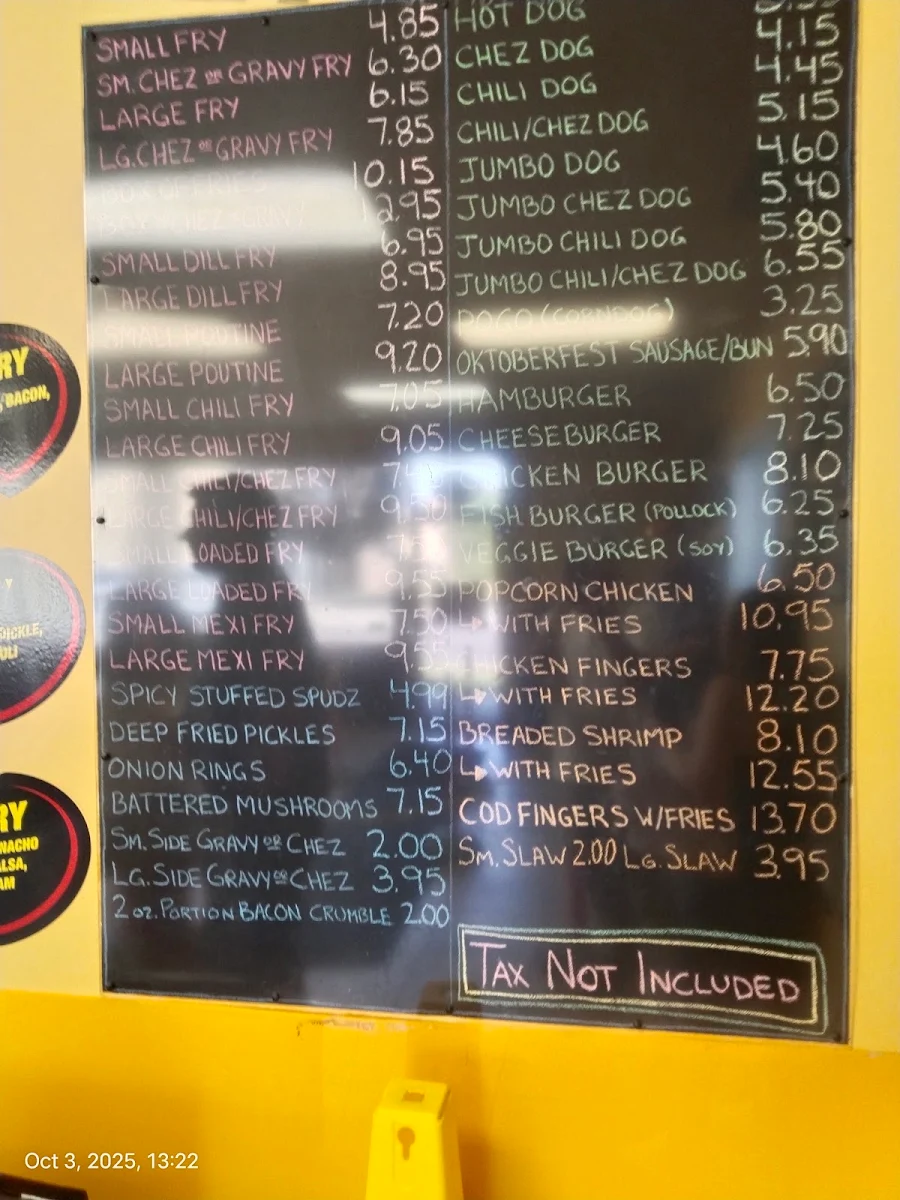 SMALL FRY 4.85
SM. CHEZ OR GRAVY FRY 6.30
LARGE FRY 6.15
LG. CHEZ OR GRAVY FRY 7.85
BOX OF FRIES 10.15
BOX CHEZ OR GRAVY 12.95
SMALL DILL FRY 6.95
LARGE DILL FRY 8.95
SMALL POUTINE 7.20
LARGE POUTINE 9.20
SMALL CHILI FRY 7.05
LARGE CHILI FRY 9.05
SMALL CHILI/CHEZ FRY
LARGE CHILI/CHEZ FRY 9.50
SMALL LOADED FRY
LARGE LOADED FRY 9.55
SMALL MEXI FRY 7.50
LARGE MEXI FRY 9.55
SPICY STUFFED SPUDZ 4.99
DEEP FRIED PICKLES 7.15
ONION RINGS 6.40
BATTERED MUSHROOMS 7.15
SM. SIDE GRAVY OR CHEZ 2.00
LG. SIDE GRAVY OR CHEZ 3.95
2 OZ. PORTION BACON CRUMBLE 2.00
HOT DOG
CHEZ DOG 4.15
CHILI DOG 4.45
CHILI/CHEZ DOG 5.15
JUMBO DOG 4.60
JUMBO CHEZ DOG 5.40
JUMBO CHILI DOG 5.80
JUMBO CHILI/CHEZ DOG 6.55
POGO (CORNDOG) 3.25
OKTOBERFEST SAUSAGE/BUN 5.90
HAMBURGER 6.50
CHEESEBURGER 7.25
CHICKEN BURGER 8.10
FISH BURGER (POLLOCK) 6.25
VEGGIE BURGER (SOY) 6.35
POPCORN CHICKEN 6.50
↳ WITH FRIES 10.95
CHICKEN FINGERS 7.75
↳ WITH FRIES 12.20
BREADED SHRIMP 8.10
↳ WITH FRIES 12.55
COD FINGERS W/FRIES 13.70
SM. SLAW 2.00 LG. SLAW 3.95
TAX NOT INCLUDED
RY
, BACON,
Y
PICKLE,
RY
NACHO
ALSA,
AM
Oct 3, 2025, 13:22